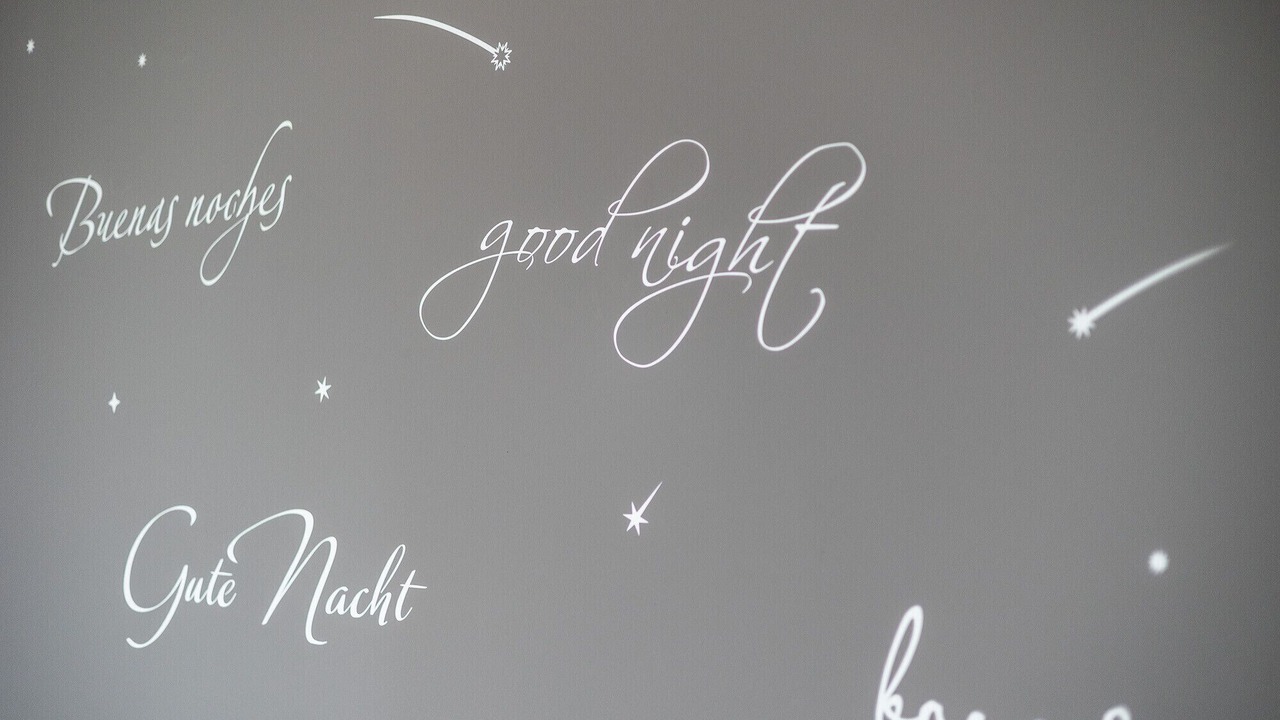 Buenas noches
good night
Gute Nacht